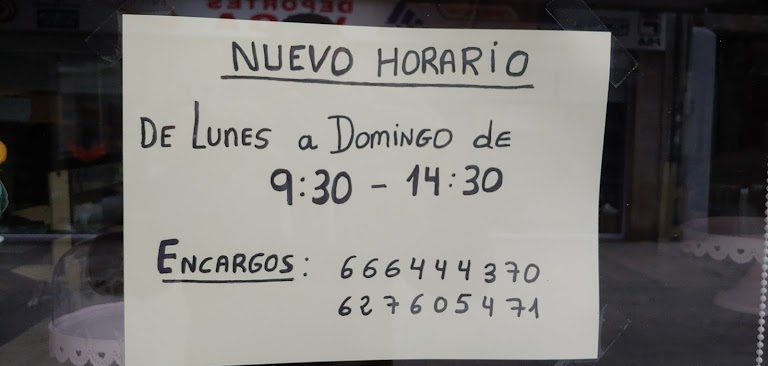 DEPORTES
NUEVO HORARIO
DE LUNES a DOMINGO de
9:30 - 14:30
ENCARGOS: 666444370
627605471